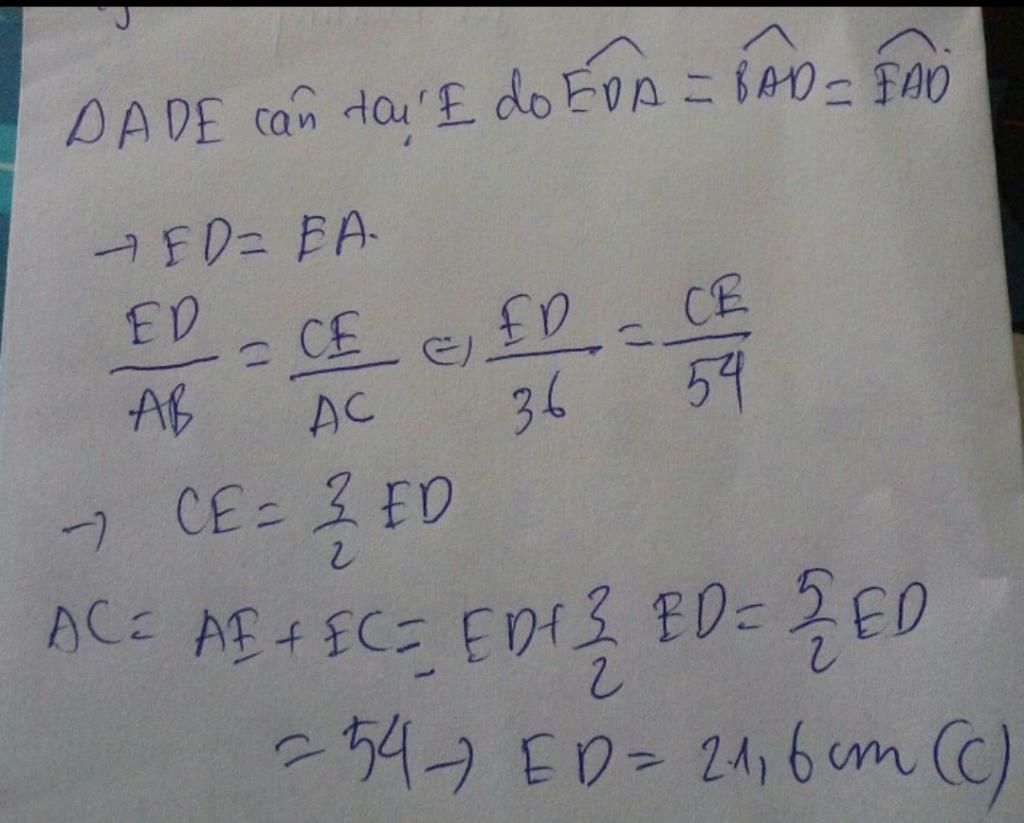 ΔADE cân tại E do \widehat{EDA} = \widehat{BAD} = \widehat{EAD}
→ ED = EA.
\frac{ED}{AB} = \frac{CE}{AC} ⇔ \frac{ED}{36} = \frac{CE}{54}
→ CE = \frac{3}{2} ED
AC = AE + EC = ED + \frac{3}{2} ED = \frac{5}{2} ED
= 54 → ED = 21,6 cm (C)